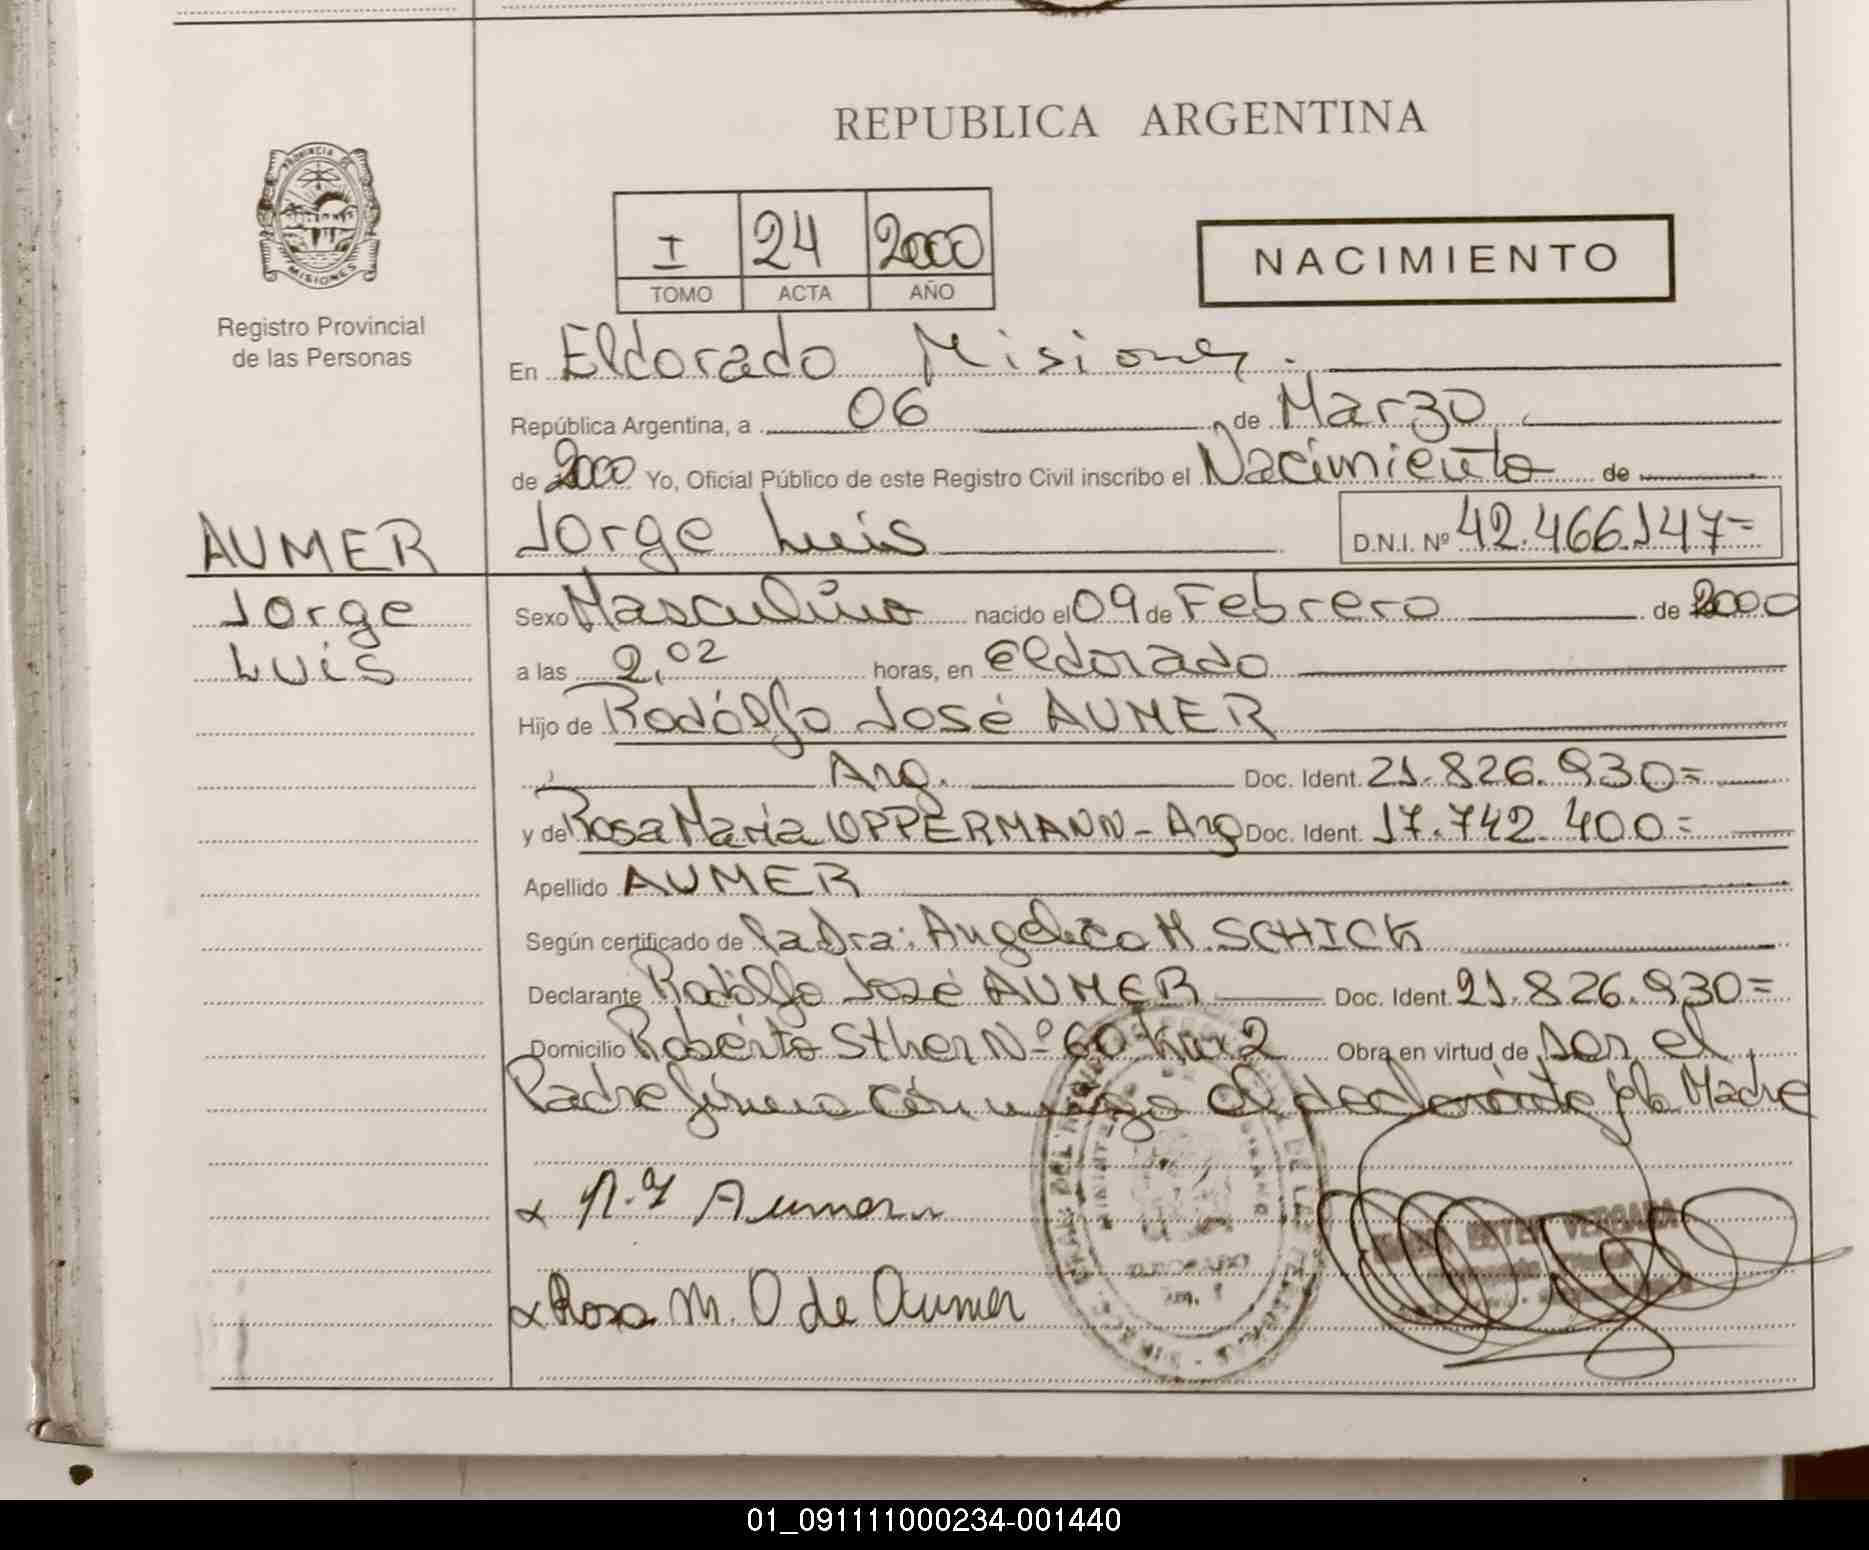 REPUBLICA ARGENTINA
PROVINCIA DE
MISIONES
Registro Provincial
de las Personas
I 24 2000
TOMO ACTA AÑO
NACIMIENTO
En Eldorado Misiones.
República Argentina, a 06 de Marzo
de 2000 Yo, Oficial Público de este Registro Civil inscribo el Nacimiento de
AUMER Jorge Luis D.N.I. Nº 42.466.147=
Jorge
Luis
Sexo Masculino nacido el 09 de Febrero de 2000
a las 2,02 horas, en Eldorado
Hijo de Rodólfo José AUMER
Arg. Doc. Ident. 21.826.930=
y de Rosa Maria OPPERMANN - Arg Doc. Ident. 17.742.400=
Apellido AUMER
Según certificado de la Dra: Angelica M. SCHICK
Declarante Rodólfo José AUMER Doc. Ident. 21.826.930=
Domicilio Roberto Sther Nº 60 Km 2 Obra en virtud de ser el
Padre firma conmigo el declarante y la Madre
Aumer
Rosa M. O de Aumer
ELDORADO
ESTER VERGARA
01_091111000234-001440